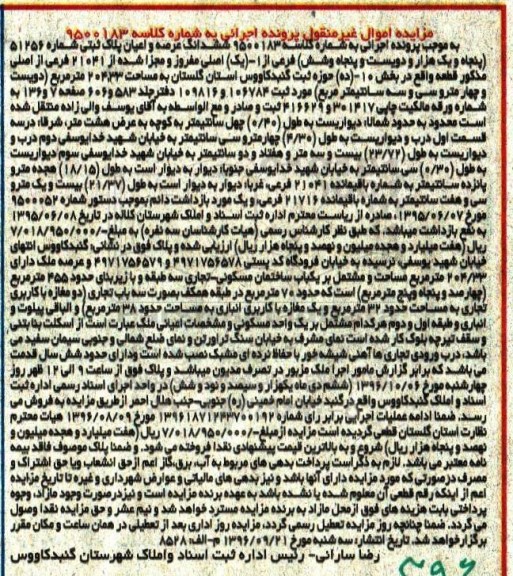 مزایده اموال غیرمنقول پرونده اجرائی به شماره کلاسه ۹۵۰۰۱۸۳
به موجب پرونده اجرائی به شماره کلاسه ۹۵۰۰۱۸۳ ششدانگ عرصه و اعیان پلاک ثبتی شماره ۵۱۲۵۶
(پنجاه و یک هزار و دویست و پنجاه وشش) فرعی از۱-(یک) اصلی مفروز و مجزا شده از ۲۱۰۴۱ فرعی از اصلی
مذکور قطعه واقع در بخش ۱۰-(ده) حوزه ثبت گنبدکاووس استان گلستان به مساحت ۲۰۴.۳۳ مترمربع (دویست
و چهار مترو سی و سه سانتیمتر مربع) مورد ثبت ۱۰۶۷۸۴ و ۱۰۹۸۱۶ دفترجلد ۵۸۳ و۶۰۶ صفحه ۷ و۱۳۶ به
شماره ورقه مالکیت چاپی ۳۰۱۴۱۷ و ۴۱۶۶۲۹ ثبت و صادر و مع الواسطه به آقای یوسف والی زاده منتقل شده
است محدود به حدود شمالا: دیواریست به طول (۰/۴۰) چهل سانتیمتر به کوچه به عرض هشت متر، شرقا: درسه
قسمت اول درب و دیواریست به طول (۴/۳۰) چهارمترو سی سانتیمتر به خیابان شهید خدایوسفی دوم درب و
دیواریست به طول (۲۳/۷۲) بیست و سه متر و هفتاد و دو سانتیمتر به خیابان شهید خدایوسفی سوم دیواریست
به طول (۰/۳۰) سی سانتیمتر به خیابان شهید خدایوسفی جنوبا: دیوار به دیوار است به طول (۱۸/۱۵) هجده مترو
پانزده سانتیمتر به شماره باقیمانده ۲۱۰۴۱ فرعی، غربا: دیوار به دیوار است به طول (۲۱/۳۷) بیست و یک مترو
سی و هفت سانتیمتر به شماره باقیمانده ۲۱۷۱۱ فرعی، و یک مورد بازداشت دائم بموجب دستور شماره ۹۵۰۰۰۵۲
مورخ ۱۳۹۵/۰۶/۰۷ صادره از ریاست محترم اداره ثبت اسناد و املاک شهرستان کلاله در تاریخ ۱۳۹۵/۰۶/۰۸
به نفع بازداشت میباشد. که طبق نظر کارشناس رسمی (هیات کارشناسان سه نفره) به مبلغ ۷/۰۱۸/۹۵۰/۰۰۰
ریال (هفت میلیارد و هجده میلیون و نهصد و پنجاه هزار ریال) ارزیابی شده و پلاک فوق در نشانی، گنبدکاووس انتهای
خیابان شهید یوسفی، نرسیده به خیابان فرودگاه کد پستی ۴۹۷۱۷۵۶۵۷۸ و ۴۹۷۱۷۵۶۵۷۹ و عرصه ملک دارای
۲۰۴/۳۳ مترمربع مساحت و مشتمل بر یکباب ساختمان مسکونی-تجاری سه طبقه و با زیربنای حدود ۴۵۵ مترمربع
(چهارصد و پنجاه وپنج مترمربع) است که حدود ۷۰ مترمربع در طبقه همکف بصورت سه باب تجاری (دو مغازه با کاربری
تجاری به مساحت حدود ۳۲ مترمربع و یک مغازه با کاربری انباری به مساحت حدود ۳۸ مترمربع) و الباقی پیلوت و
انباری و طبقه اول و دوم هرکدام مشتمل بر یک واحد مسکونی و مشخصات اعیانی ملک عبارت است از اسکلت بنا بتنی
و سقف تیرچه بلوک کار شده است نمای مشرف به خیابان سنگ تراورتن و نمای ضلع شمالی و جنوبی سیمان سفید می
باشد، درب ورودی تجاری ها آهنی شیشه خور با حفاظ نرده ای مشبک نصب شده است ودارای حدود شش سال قدمت
می باشد که برابر گزارش مامور اجرا ملک مزبور در تصرف مدیون میباشد و پلاک فوق از ساعت ۹ الی ۱۲ ظهر روز
چهارشنبه مورخ ۱۳۹۶/۱۰/۰۶ (ششم دی ماه یکهزار و سیصد و نود و شش) در واحد اجرای اسناد رسمی اداره ثبت
اسناد و املاک گنبدکاووس واقع در گنبد خیابان امام خمینی (ره) جنوبی-جنب هلال احمر ازطریق مزایده به فروش می
رسد. ضمنا ادامه عملیات اجرایی برابر رای شماره ۱۳۹۶۱۸۷۱۲۴۳۷۰۰۱۹۲ مورخ ۱۳۹۶/۰۸/۰۹ هیات محترم
نظارت استان گلستان قطعی گردیده است مزایده ازمبلغ ۷/۰۱۸/۹۵۰/۰۰۰ ریال (هفت میلیارد و هجده میلیون و
نهصد و پنجاه هزار ریال) شروع و به بالاترین قیمت پیشنهادی نقدا فروخته می شود. و ضمنا پلاک موصوف فاقد بیمه
نامه معتبر می باشد. لازم به ذکر است پرداخت بدهی های مربوط به آب، برق،گاز اعم از حق انشعاب ویا حق اشتراک و
مصرف درصورتی که مورد مزایده دارای آنها باشد و نیز بدهی های مالیاتی و عوارض شهرداری و غیره تا تاریخ مزایده
اعم از اینکه رقم قطعی آن معلوم شده یا نشده باشد به عهده برنده مزایده است و نیزدرصورت وجود مازاد، وجوه
پرداختی بابت هزینه های فوق ازمحل مازاد به برنده مزایده مسترد خواهد شد و نیم عشر و حق مزایده نقدا وصول
می گردد. ضمنا چنانچه روز مزایده تعطیل رسمی گردد، مزایده روز اداری بعد از تعطیلی در همان ساعت و مکان مقرر
برگزار خواهد شد. تاریخ انتشار: سه شنبه مورخ ۱۳۹۶/۰۹/۲۱ م-الف: ۸۵۲۸
رضا سارانی- رئیس اداره ثبت اسناد واملاک شهرستان گنبدکاووس